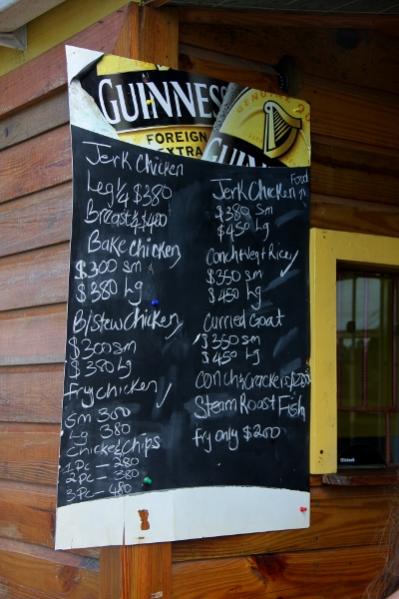 GUINNESS
FOREIGN
EXTRA
GENUINE
GUIN
Jerk Chicken
Leg 1/4 $380
Breast 1/4 $400
Bake chicken
$300 sm
$380 Lg
B/Stew Chicken
$300 sm
$380 Lg
Fry chicken
Sm 300
Lg 380
Chicken & Chips
1 Pc — 280
2 Pc — 380
3 Pc — 480
Jerk Chicken Food
$380 sm
$450 Lg
Conch & Veg & Rice
$350 sm
$450 Lg
Curried Goat
$350 sm
$450 Lg
Conch & Crackers $250
Steam Roast Fish
Fry only $200